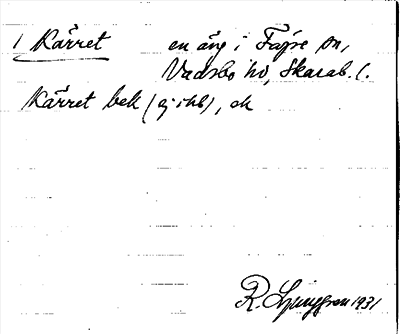 1 Kärret en äng i Fägre sn,
Vadsbo hd, Skarab. l.
Kärret bek (ej ihb), ck
R. Ljunggren 1931